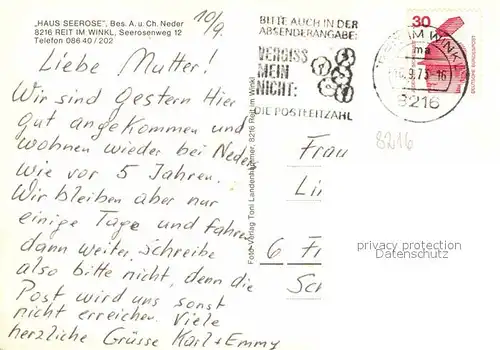 „HAUS SEEROSE", Bes. A. u. Ch. Neder
8216 REIT IM WINKL, Seerosenweg 12
Telefon 08640/202
10/9.
Liebe Mutter!
Wir sind gestern Hier
gut angekommen und
wohnen wieder bei Neder
wie vor 5 Jahren.
Wir bleiben aber nur
einige Tage und fahren
dann weiter. Schreibe
also bitte nicht, denn die
Post wird uns sonst
nicht erreichen. Viele
herzliche Grüsse Karl + Emmy
Foto-Verlag Toni Landenhammer, 8216 Reit im Winkl
BITTE AUCH IN DER
ABSENDERANGABE:
VERGISS
MEIN
NICHT:
DIE POSTLEITZAHL
IM WINKL
ma
8216
30
8216
Frau
Li
6 F
Sc
privacy protection
Datenschutz